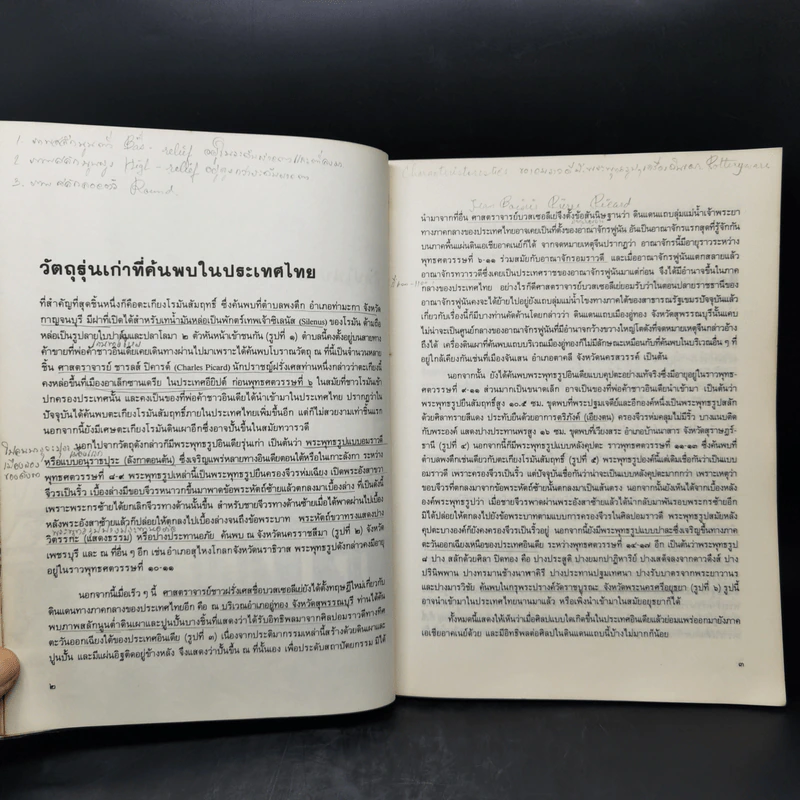 1. ภาพสลักนูนต่ำ Bas-relief
2. ภาพสลักนูนสูง High-relief
3. ภาพสลักลอยตัว Round
วัตถุรุ่นเก่าที่ค้นพบในประเทศไทย
ที่สำคัญที่สุดชิ้นหนึ่งก็คือตะเกียงโรมันสัมฤทธิ์ ซึ่งค้นพบที่ตำบลพงตึก อำเภอท่ามะกา จังหวัด
กาญจนบุรี มีฝาที่เปิดได้สำหรับเทน้ำมันหล่อเป็นพักตร์เทพเจ้าซิเลนัส (Silenus) ของโรมัน ด้ามถือ
หล่อเป็นรูปลายใบปาล์มและปลาโลมา ๒ ตัวหันหน้าเข้าชนกัน (รูปที่ ๑) ตำบลนี้คงตั้งอยู่บนทาง
ค้าขายที่พ่อค้าชาวอินเดียเคยเดินทางผ่านไปมาเพราะได้ค้นพบโบราณวัตถุ ณ ที่นี้เป็นจำนวนหลาย
ชิ้น ศาสตราจารย์ ชารลส์ ปิคารด์ (Charles Picard) นักปราชญ์ฝรั่งเศสท่านหนึ่งกล่าวว่าตะเกียงนี้
คงหล่อขึ้นที่เมืองอาเล็กซานเดรีย ในประเทศอียิปต์ ก่อนพุทธศตวรรษที่ ๖ ในสมัยที่ชาวโรมันเข้า
ปกครองประเทศนั้น และคงเป็นของที่พ่อค้าชาวอินเดียได้นำเข้ามาในประเทศไทย ปรากฏว่าใน
ปัจจุบันได้ค้นพบตะเกียงโรมันสัมฤทธิ์ภายในประเทศไทยเพิ่มขึ้นอีก แต่ก็ไม่สวยงามเท่าชิ้นแรก
นอกจากนี้ยังมีเศษตะเกียงโรมันดินเผาอีกซึ่งอาจปั้นขึ้นในสมัยทวารวดี
นอกไปจากวัตถุดังกล่าวก็มีพระพุทธรูปอินเดียรุ่นเก่า เป็นต้นว่า พระพุทธรูปแบบอมราวดี
หรือแบบอนุราธปุระ (ลังกาตอนต้น) ซึ่งเจริญแพร่หลายทางอินเดียตอนใต้หรือในเกาะลังกา ระหว่าง
พุทธศตวรรษที่ ๘-๙ พระพุทธรูปเหล่านี้เป็นพระพุทธรูปยืนครองจีวรห่มเฉียง เปิดพระอังสาขวา
จีวรเป็นริ้ว เบื้องล่างมีขอบจีวรหนาวกขึ้นมาพาดข้อพระหัตถ์ซ้ายแล้วตกลงมาเบื้องล่าง ที่เป็นดังนี้
เพราะพระกรซ้ายได้ยกเลิกจีวรทางด้านนั้นขึ้น สำหรับชายจีวรทางด้านซ้ายเมื่อได้พาดผ่านไปเบื้อง
หลังพระอังสาซ้ายแล้วก็ปล่อยให้ตกลงไปเบื้องล่างจนถึงข้อพระบาท พระหัตถ์ขวาทรงแสดงปาง
วิตรรกะ (แสดงธรรม) หรือปางประทานอภัย ค้นพบ ณ จังหวัดนครราชสีมา (รูปที่ ๒) จังหวัด
เพชรบุรี และ ณ ที่อื่น ๆ อีก เช่นอำเภอสุไหงโกลกจังหวัดนราธิวาส พระพุทธรูปดังกล่าวคงมีอายุ
อยู่ในราวพุทธศตวรรษที่ ๑๐-๑๑
นอกจากนี้เมื่อเร็ว ๆ นี้ ศาสตราจารย์ชาวฝรั่งเศสชื่อบวสเซอลีเย่ยังได้ตั้งทฤษฎีใหม่เกี่ยวกับ
ดินแดนทางภาคกลางของประเทศไทยอีก คือ ณ บริเวณอำเภออู่ทอง จังหวัดสุพรรณบุรี ท่านได้ค้น
พบภาพสลักนูนต่ำดินเผาและปูนปั้นบางชิ้นที่แสดงว่าได้รับอิทธิพลมาจากศิลปอมราวดีทางทิศ
ตะวันออกเฉียงใต้ของประเทศอินเดีย (รูปที่ ๓) เนื่องจากประติมากรรมเหล่านี้สร้างด้วยดินเผาและ
ปูนปั้น และมีแผ่นอิฐติดอยู่ข้างหลัง จึงแสดงว่าปั้นขึ้น ณ ที่นั้นเอง เพื่อประดับสถาปัตยกรรม มิได้
๒
Jean Boisselier Pierre Picard
นำมาจากที่อื่น ศาสตราจารย์บวสเซอลีเย่จึงตั้งข้อสันนิษฐานว่า ดินแดนแถบลุ่มแม่น้ำเจ้าพระยา
ทางภาคกลางของประเทศไทยอาจเคยเป็นที่ตั้งของอาณาจักรฟูนัน อันเป็นอาณาจักรแรกสุดที่รู้จักกัน
บนภาคพื้นแผ่นดินเอเชียอาคเนย์ก็ได้ จากจดหมายเหตุจีนปรากฏว่า อาณาจักรนี้มีอายุราวระหว่าง
พุทธศตวรรษที่ ๖-๑๑ ร่วมสมัยกับอาณาจักรอมราวดี และเมื่ออาณาจักรฟูนันแตกสลายแล้ว
อาณาจักรทวารวดีซึ่งเคยเป็นประเทศราชของอาณาจักรฟูนันมาแต่ก่อน จึงได้มีอำนาจขึ้นในภาค
กลางของประเทศไทย อย่างไรก็ดีศาสตราจารย์บวสเซอลีเย่ยอมรับว่าในตอนปลายราชธานีของ
อาณาจักรฟูนันคงจะได้ย้ายไปอยู่ยังแถบลุ่มแม่น้ำโขงทางภาคใต้ของสาธารณรัฐเขมรปัจจุบันแล้ว
เกี่ยวกับเรื่องนี้ก็มีบางท่านคัดค้านโดยกล่าวว่า ดินแดนแถบเมืองอู่ทอง จังหวัดสุพรรณบุรีนั้นแคบ
ไม่น่าจะเป็นศูนย์กลางของอาณาจักรฟูนันที่มีอำนาจกว้างขวางใหญ่โตดังที่จดหมายเหตุจีนกล่าวอ้าง
ถึงได้ เครื่องดินเผาที่ค้นพบแถบบริเวณเมืองอู่ทองก็ไม่มีลักษณะเหมือนกับที่ค้นพบในบริเวณอื่น ๆ ที่
อยู่ใกล้เคียงกันเช่นที่เมืองจันเสน อำเภอตาคลี จังหวัดนครสวรรค์ เป็นต้น
นอกจากนั้น ยังได้ค้นพบพระพุทธรูปอินเดียแบบคุปตะอย่างแท้จริงซึ่งมีอายุอยู่ในราวพุทธ-
ศตวรรษที่ ๙-๑๑ ส่วนมากเป็นขนาดเล็ก อาจเป็นของที่พ่อค้าชาวอินเดียนำเข้ามา เป็นต้นว่า
พระพุทธรูปยืนสัมฤทธิ์สูง ๑๐.๕ ซม. ขุดพบที่พระปฐมเจดีย์และอีกองค์หนึ่งเป็นพระพุทธรูปสลัก
ด้วยศิลาทรายสีแดง ประทับยืนด้วยอาการตริภังค์ (เอียงตน) ครองจีวรห่มคลุมไม่มีริ้ว บางแนบติด
กับพระองค์ แสดงปางประทานพรสูง ๑๖ ซม. ขุดพบที่เวียงสระ อำเภอบ้านนาสาร จังหวัดสุราษฎร์-
ธานี (รูปที่ ๔) นอกจากนี้ก็มีพระพุทธรูปแบบหลังคุปตะ ราวพุทธศตวรรษที่ ๑๑-๑๓ ซึ่งค้นพบที่
ตำบลพงตึกเช่นเดียวกับตะเกียงโรมันสัมฤทธิ์ (รูปที่ ๕) พระพุทธรูปองค์นี้แต่เดิมเชื่อกันว่าเป็นแบบ
อมราวดี เพราะครองจีวรเป็นริ้ว แต่ปัจจุบันเชื่อกันว่าน่าจะเป็นแบบหลังคุปตะมากกว่า เพราะเหตุว่า
ขอบจีวรที่ตกลงมาจากข้อพระหัตถ์ซ้ายนั้นตกลงมาเป็นเส้นตรง นอกจากนั้นยังเห็นได้จากเบื้องหลัง
องค์พระพุทธรูปว่า เมื่อชายจีวรพาดผ่านพระอังสาซ้ายแล้วได้นำกลับมาพันรอบพระกรซ้ายอีก
มิได้ปล่อยให้ตกลงไปยังข้อพระบาทตามแบบการครองจีวรในศิลปอมราวดี พระพุทธรูปสมัยหลัง
คุปตะบางองค์ก็ยังคงครองจีวรเป็นริ้วอยู่ นอกจากนี้ยังมีพระพุทธรูปแบบปาละซึ่งเจริญขึ้นทางภาค
ตะวันออกเฉียงเหนือของประเทศอินเดีย ระหว่างพุทธศตวรรษที่ ๑๔-๑๗ อีก เป็นต้นว่าพระพุทธรูป
๘ ปาง สลักด้วยศิลา ปิดทอง คือ ปางประสูติ ปางยมกปาฏิหาริย์ ปางเสด็จลงจากดาวดึงส์ ปาง
ปรินิพพาน ปางทรมานช้างนาฬาคิรี ปางประทานปฐมเทศนา ปางรับบาตรจากพระยาวานร
และปางมารวิชัย ค้นพบในกรุพระปรางค์วัดราชบูรณะ จังหวัดพระนครศรีอยุธยา (รูปที่ ๖) รูปนี้
อาจนำเข้ามาในประเทศไทยนานมาแล้ว หรือเพิ่งนำเข้ามาในสมัยอยุธยาก็ได้
ทั้งหมดนี้แสดงให้เห็นว่าเมื่อศิลปแบบใดเกิดขึ้นในประเทศอินเดียแล้วย่อมแพร่ออกมายังภาค
เอเชียอาคเนย์ด้วย และมีอิทธิพลต่อศิลปในดินแดนแถบนี้บ้างไม่มากก็น้อย
๓